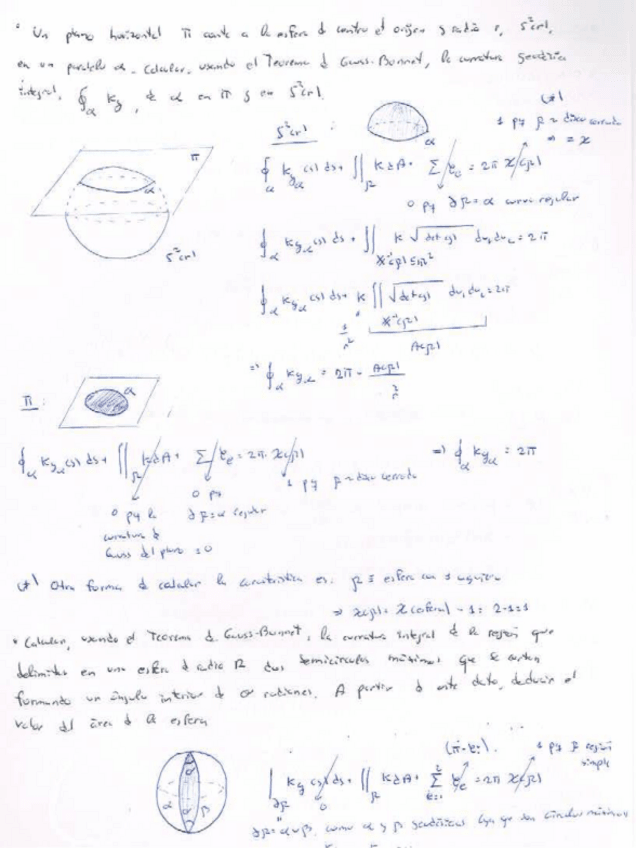 * Un plano horizontal π corta a la esfera d centro el origen y radio r, S²(r),
en un paralelo α. Calcular, usando el Teorema d Gauss-Bonnet, la curvatura geodésica
integral, ∮_α kg, de α en π y en S²(r).
S²(r) :
α
(*)
1 pq R ≃ disco cerrado
⇒ = χ
π
α
S²(r)
∮_α kg_α(s) ds + ∬_R K dA + Σ ξ_e = 2π χ(R)
0 pq ∂R = α curva regular
∮_α kg_α(s) ds + ∬ K √det(g) du₁ du₂ = 2π
X⁻¹(R) ⊆ ℝ²
∮_α kg_α(s) ds + K ∬ √det(g) du₁ du₂ = 2π
1/r² X⁻¹(R)
A(R)
⇒ ∮_α kg_α = 2π - A(R)/r²
π :
α
∮_α kg_α(s) ds + ∬_R K dA + Σ ξ_e = 2π χ(R) ⇒ ∮_α kg_α = 2π
1 pq R ≃ disco cerrado
0 pq
0 pq la ∂R = α regular
curvatura d
Gauss del plano = 0
(*) Otra forma d calcular la característica es: R ≡ esfera con 1 agujero
⇒ χ(R) = χ(esfera) - 1 = 2-1 = 1
* Calcular, usando el Teorema d Gauss-Bonnet, la curvatura integral d la región que
delimitan en una esfera d radio R dos semicírculos máximos que se cortan
formando un ángulo interior de σ radianes. A partir d este dato, deducir el
valor del área d la esfera
α
β
σ
σ
(π-σ).
1 pq R región
simple
∫_∂R kg(s) ds + ∬_R K dA + Σ ξ_e = 2π χ(R)
0
∂R = α∪β, como α y β geodésicas (ya que son círculos máximos